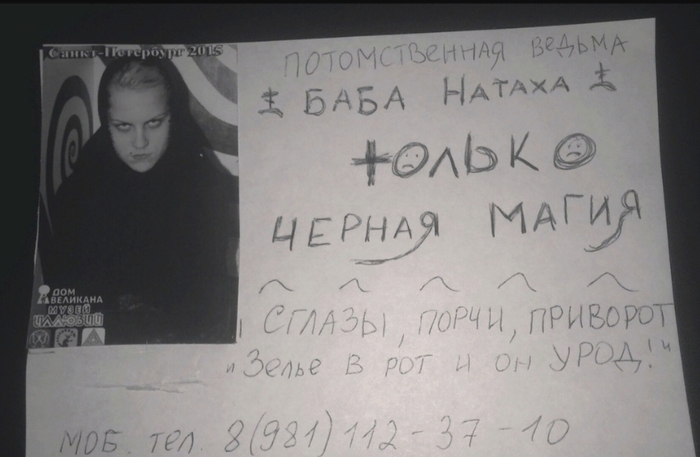 Санкт-Петербург 2015
ПОТОМСТВЕННАЯ ВЕДЬМА
БАБА НАТАХА
ТОЛЬКО
ЧЕРНАЯ МАГИЯ
СГЛАЗЫ, ПОРЧИ, ПРИВОРОТ
"Зелье В РОТ И ОН УРОД!"
МОБ. тел. 8(981)112-37-10
ДОМ
ВЕЛИКАНА
МУЗЕЙ